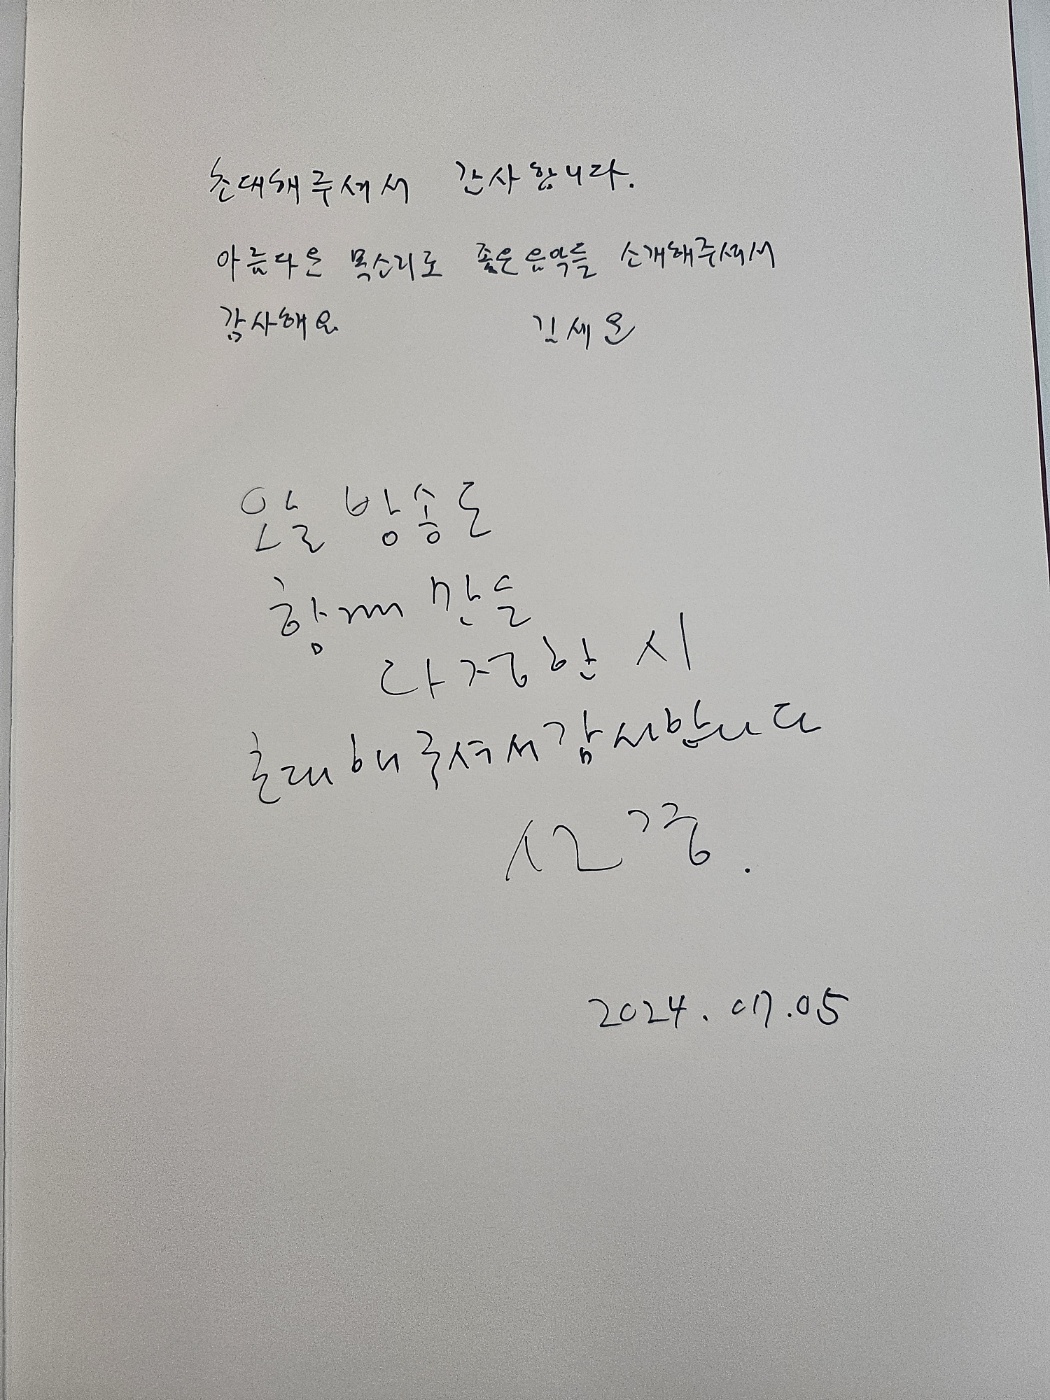 초대해주셔서 감사합니다.
아름다운 목소리로 좋은 음악들 소개해주셔서
감사해요 김세운
방송도
함께 만들
다정한 시
초대해주셔서 감사합니다
2024.07.05